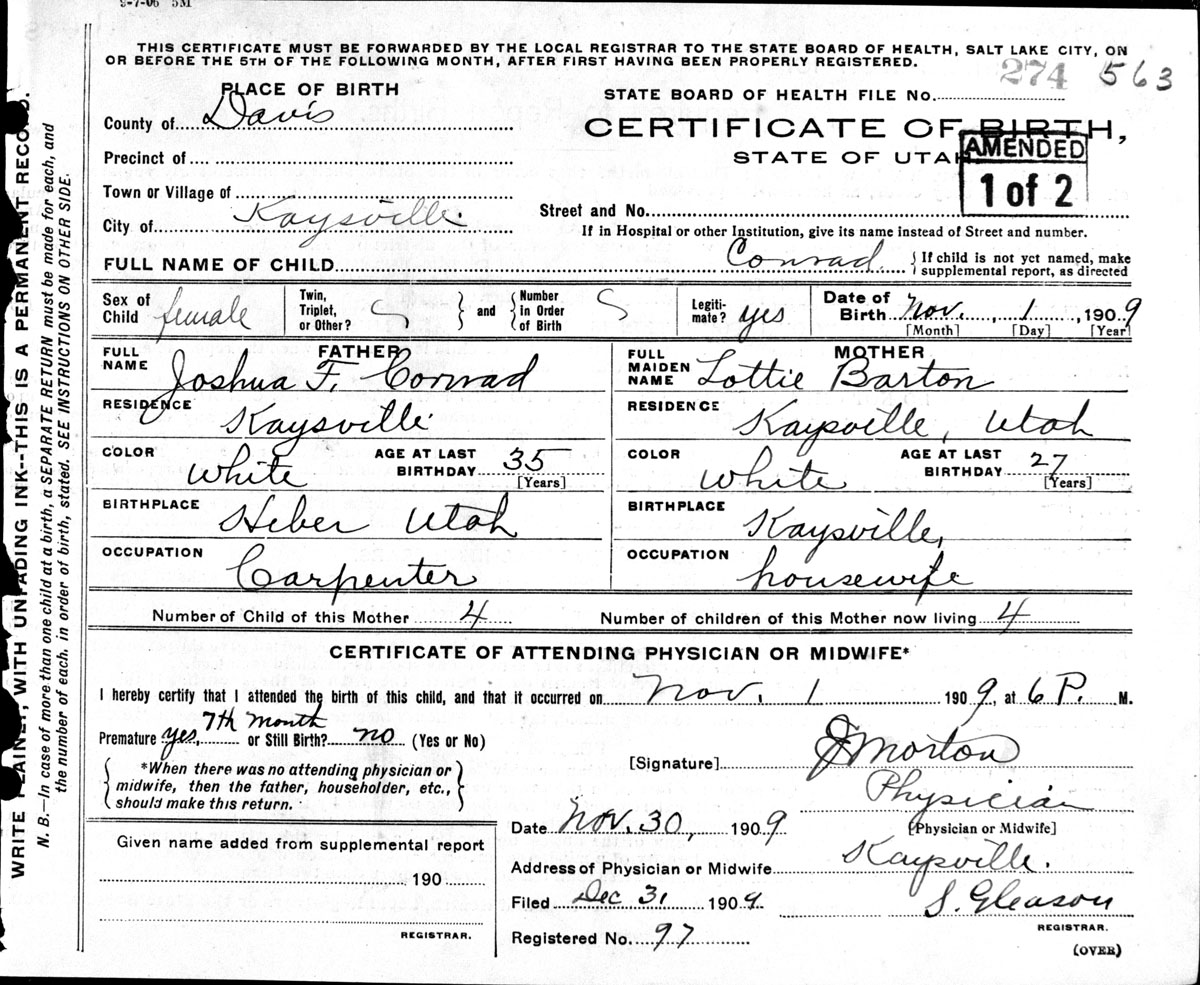 9-7-06 5M
THIS CERTIFICATE MUST BE FORWARDED BY THE LOCAL REGISTRAR TO THE STATE BOARD OF HEALTH, SALT LAKE CITY, ON
OR BEFORE THE 5TH OF THE FOLLOWING MONTH, AFTER FIRST HAVING BEEN PROPERLY REGISTERED.
274 563
PLACE OF BIRTH
STATE BOARD OF HEALTH FILE No.
County of Davis
CERTIFICATE OF BIRTH,
STATE OF UTAH
AMENDED
1 of 2
Precinct of
Town or Village of
City of Kaysville.
Street and No.
If in Hospital or other Institution, give its name instead of Street and number.
FULL NAME OF CHILD Conrad. { If child is not yet named, make
supplemental report, as directed
Sex of Child female
Twin, Triplet, or Other? } and { Number in Order of Birth
Legiti-mate? yes
Date of Birth Nov. 1, 1909
[Month] [Day] [Year]
FATHER
FULL NAME Joshua F. Conrad
MOTHER
FULL MAIDEN NAME Lottie Barton
RESIDENCE Kaysville
RESIDENCE Kaysville, Utah
COLOR White AGE AT LAST BIRTHDAY 35 [Years]
COLOR White AGE AT LAST BIRTHDAY 27 [Years]
BIRTHPLACE Heber Utah
BIRTHPLACE Kaysville,
OCCUPATION Carpenter
OCCUPATION housewife
Number of Child of this Mother 4 Number of children of this Mother now living 4
CERTIFICATE OF ATTENDING PHYSICIAN OR MIDWIFE*
I hereby certify that I attended the birth of this child, and that it occurred on Nov. 1 1909, at 6 P. M.
Premature yes, 7th month or Still Birth? no (Yes or No)
{ *When there was no attending physician or
midwife, then the father, householder, etc.,
should make this return. }
[Signature] J Morton
Physician
[Physician or Midwife]
Date Nov. 30, 1909
Address of Physician or Midwife Kaysville.
Filed Dec 31 1909. S. Gleason
REGISTRAR.
Registered No. 97
(OVER)
Given name added from supplemental report
190
REGISTRAR.
WRITE PLAINLY, WITH UNFADING INK--THIS IS A PERMANENT RECORD.
N. B.—In case of more than one child at a birth, a SEPARATE RETURN must be made for each, and
the number of each, in order of birth, stated. SEE INSTRUCTIONS ON OTHER SIDE.